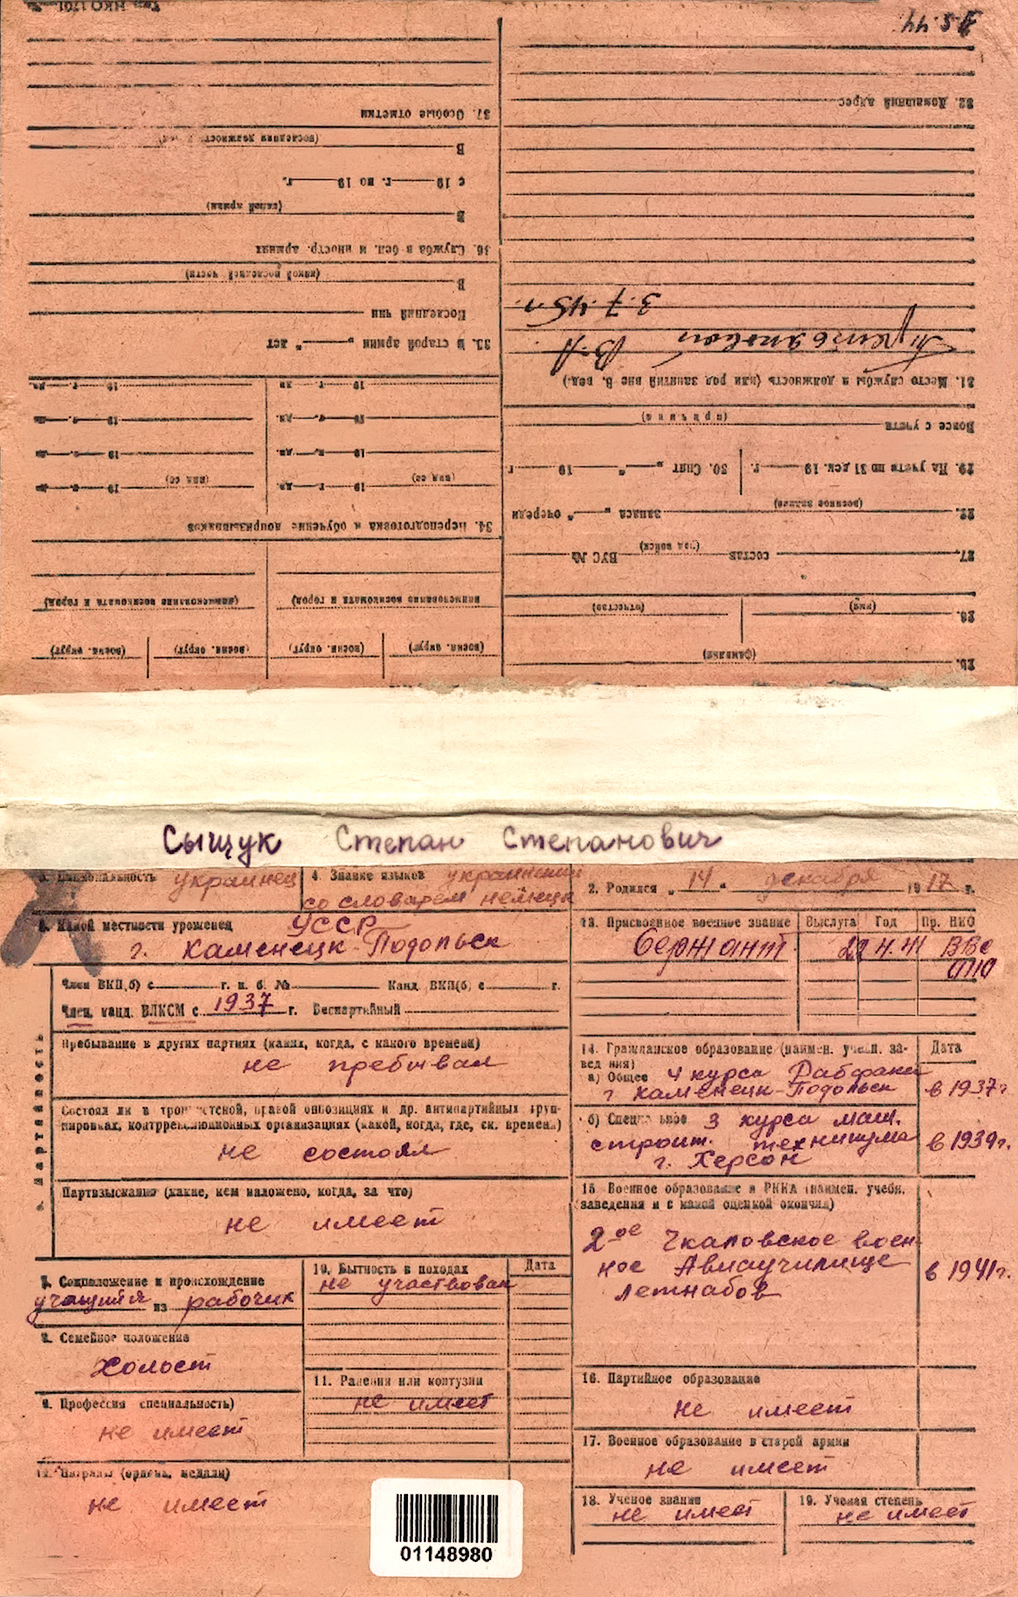 Тип. НКО 1701
5.44
37. Особые отметки
32. Домашний адрес
(последняя должность)
В
с 19 г. по 19 г.
(какой армии)
В
36. Служба в бел. и иностр. армиях
(какой последней части)
В
Последний чин
35. В старой армии „ " лет
3.7.45г.
В.А.
31. Место службы и должность (или род занятий вне в. вед.)
19 г. дн. 19 г. дн.
19 г. дн. 19 г. дн.
19 г. дн. 19 г. дн.
19 г. дн. 19 г. дн.
(вид сб) (вид сб)
34. Переподготовка и обучение допризывников
(причина)
Вовсе с учета
29. На учете по 31 дек. 19 г. 30. Снят „ " 19 г.
(военное звание)
28. запаса „ " очереди
27. состав (род войск) ВУС №
(наименование военкомата и город) наименование военкомата и город)
(имя) (отчество)
26.
(воен. округ) (воен. округ) (воен. округ) (воен. округ)
(фамилия)
25.
Сыщук Степан Степанович
3. Национальность украинец
4. Знание языков украинский
со словарем немецк
2. Родился „ 14 " декабря 1917 г.
5. Какой местности уроженец УССР
г. Каменецк-Подольск
Член ВКП(б) с г. п. б. № Канд. ВКП(б) с г.
Член, канд. ВЛКСМ с 1937 г. Беспартийный
6. Партийность
Пребывание в других партиях (каких, когда, с какого времени)
не пребывал
Состоял ли в троцкистской, правой оппозициях и др. антипартийных груп-
пировках, контрреволюционных организациях (какой, когда, где, ск. времени)
не состоял
Партвзыскания (какие, кем наложено, когда, за что)
не имеет
7. Соцположение и происхождение
учащийся из рабочих
8. Семейное положение
холост
9. Профессия специальность)
не имеет
10. Бытность в походах Дата
не участвовал
11. Ранения или контузии
не имеет
12. Награды (ордена, медали)
не имеет
13. Присвоенное военное звание Выслуга Год Пр. НКО
Сержант 22 4.41 ВВС
0110
14. Гражданское образование (наимен. учебн. за- Дата
ведения)
а) Общее 4 курса Рабфака
г Каменецк-Подольск в 1937г
б) Специальное 3 курса маш.
строит. техникума в 1939г.
г. Херсон
15 Военное образование в РККА (наимен. учебн.
заведения и с какой оценкой окончил)
2ое Чкаловское воен-
ное Авиаучилище в 1941г.
летнабов
16. Партийное образование
не имеет
17. Военное образование в старой армии
не имеет
18. Ученое звание
не имеет
19. Ученая степень
не имеет
01148980